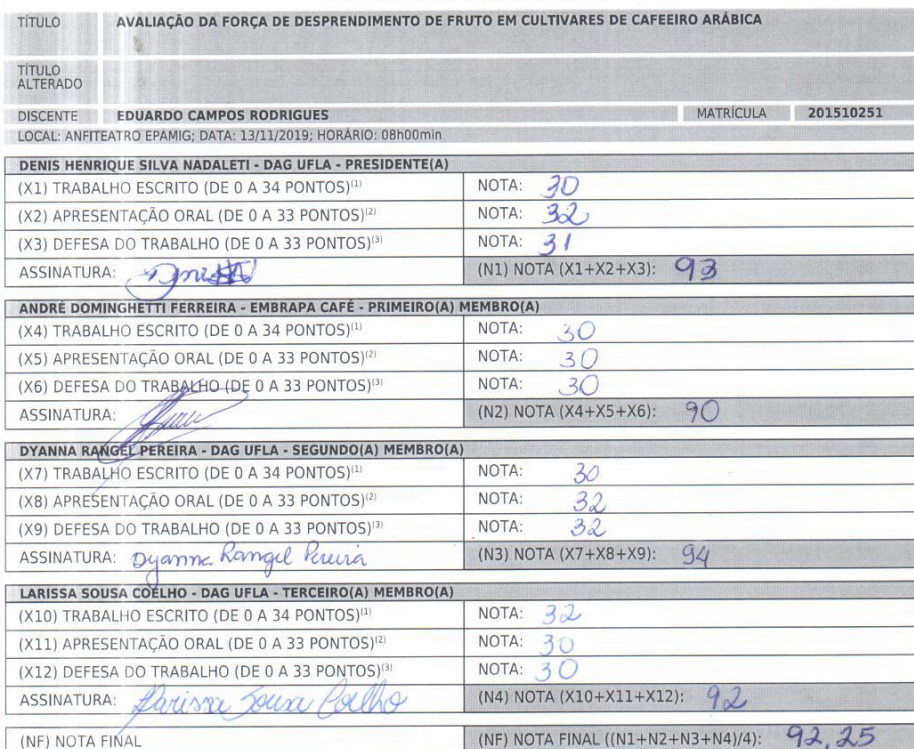 TÍTULO AVALIAÇÃO DA FORÇA DE DESPRENDIMENTO DE FRUTO EM CULTIVARES DE CAFEEIRO ARÁBICA
TÍTULO
ALTERADO
DISCENTE EDUARDO CAMPOS RODRIGUES MATRÍCULA 201510251
LOCAL: ANFITEATRO EPAMIG; DATA: 13/11/2019; HORÁRIO: 08h00min
DENIS HENRIQUE SILVA NADALETI - DAG UFLA - PRESIDENTE(A)
(X1) TRABALHO ESCRITO (DE 0 A 34 PONTOS)(1) NOTA: 30
(X2) APRESENTAÇÃO ORAL (DE 0 A 33 PONTOS)(2) NOTA: 32
(X3) DEFESA DO TRABALHO (DE 0 A 33 PONTOS)(3) NOTA: 31
ASSINATURA: (N1) NOTA (X1+X2+X3): 93
ANDRÉ DOMINGHETTI FERREIRA - EMBRAPA CAFÉ - PRIMEIRO(A) MEMBRO(A)
(X4) TRABALHO ESCRITO (DE 0 A 34 PONTOS)(1) NOTA: 30
(X5) APRESENTAÇÃO ORAL (DE 0 A 33 PONTOS)(2) NOTA: 30
(X6) DEFESA DO TRABALHO (DE 0 A 33 PONTOS)(3) NOTA: 30
ASSINATURA: (N2) NOTA (X4+X5+X6): 90
DYANNA RANGEL PEREIRA - DAG UFLA - SEGUNDO(A) MEMBRO(A)
(X7) TRABALHO ESCRITO (DE 0 A 34 PONTOS)(1) NOTA: 30
(X8) APRESENTAÇÃO ORAL (DE 0 A 33 PONTOS)(2) NOTA: 32
(X9) DEFESA DO TRABALHO (DE 0 A 33 PONTOS)(3) NOTA: 32
ASSINATURA: Dyanna Rangel Pereira (N3) NOTA (X7+X8+X9): 94
LARISSA SOUSA COELHO - DAG UFLA - TERCEIRO(A) MEMBRO(A)
(X10) TRABALHO ESCRITO (DE 0 A 34 PONTOS)(1) NOTA: 32
(X11) APRESENTAÇÃO ORAL (DE 0 A 33 PONTOS)(2) NOTA: 30
(X12) DEFESA DO TRABALHO (DE 0 A 33 PONTOS)(3) NOTA: 30
ASSINATURA: Larissa Sousa Coelho (N4) NOTA (X10+X11+X12): 92
(NF) NOTA FINAL (NF) NOTA FINAL ((N1+N2+N3+N4)/4): 92,25